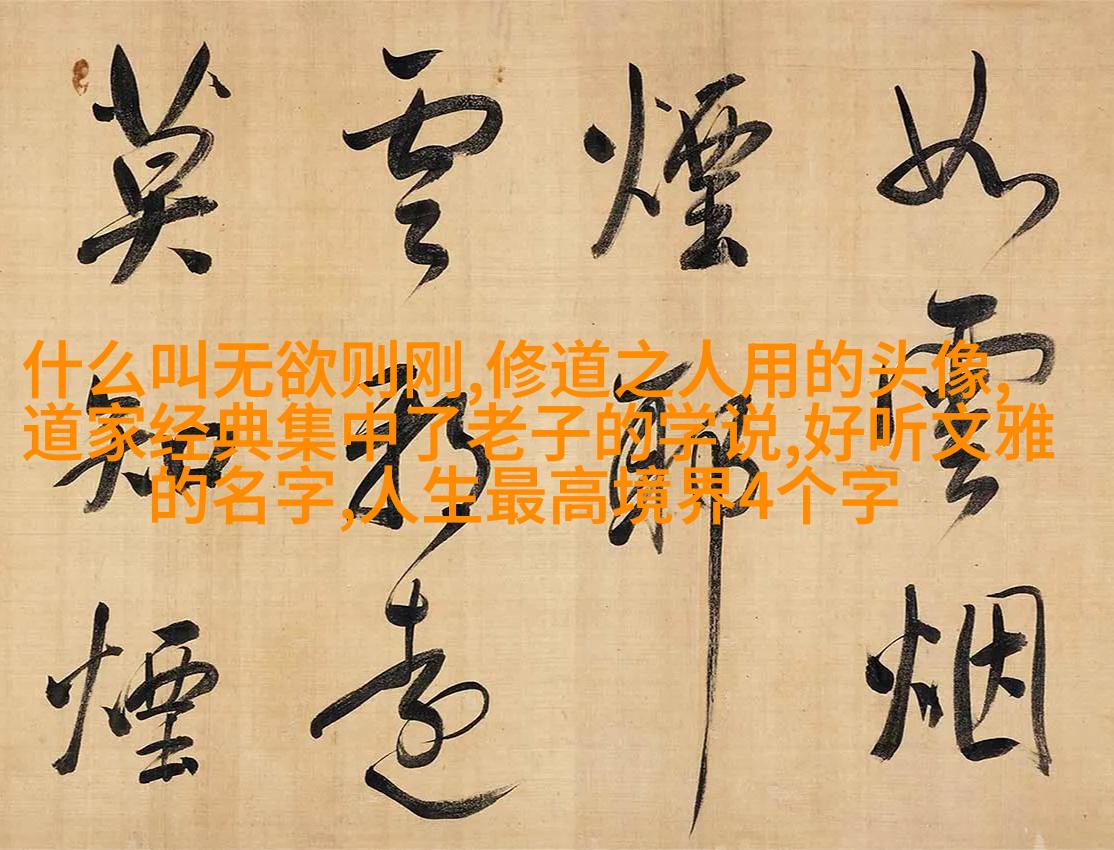 如雲烟
煙
雲遠
莫知煙
什么叫无欲则刚,修道之人用的头像,
道家经典集中了老子的学说,好听文雅
的名字,人生最高境界4个字